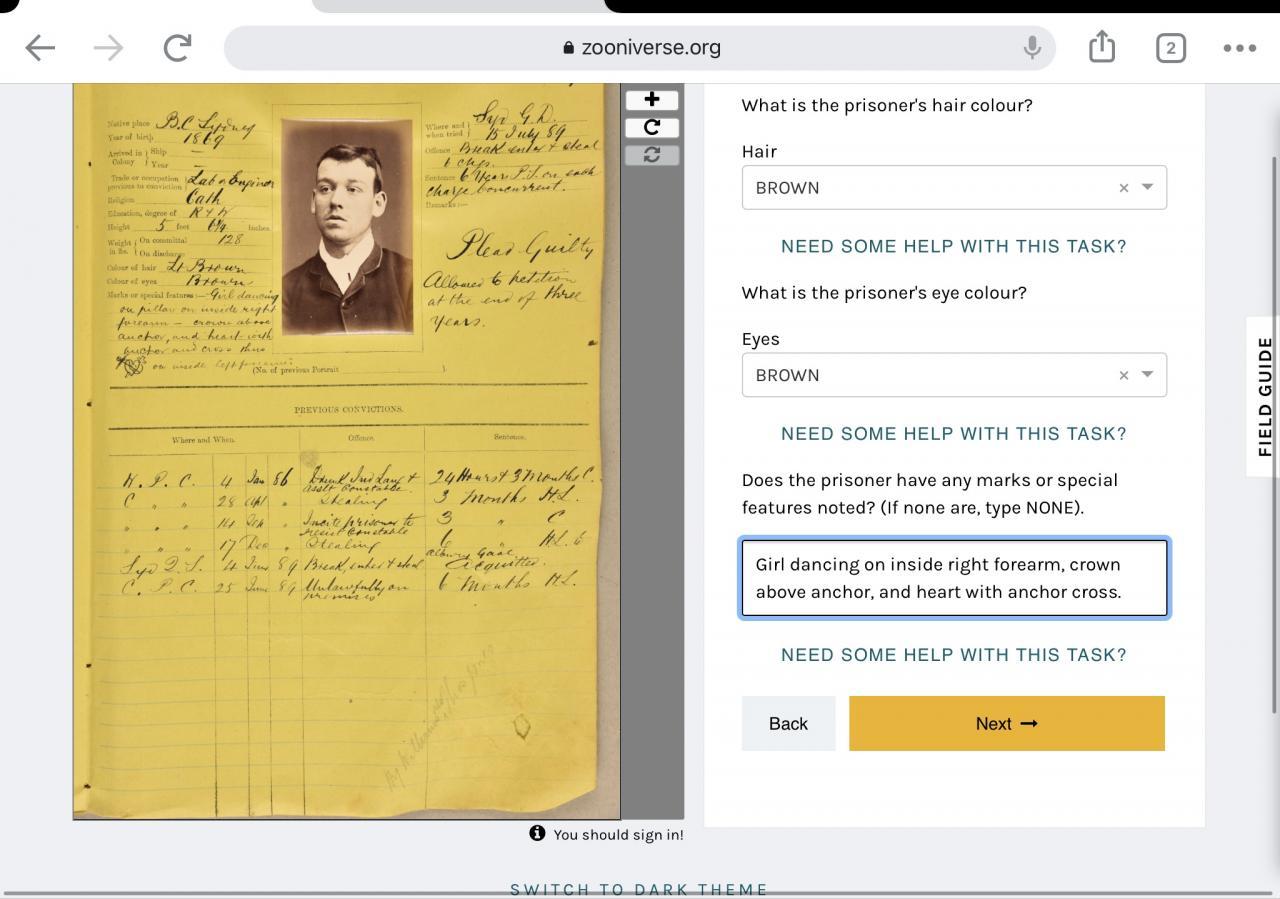 zooniverse.org
2
Native place B.C. Sydney
Year of birth 1869
Arrived in Colony } Ship —
Year —
Trade or occupation previous to conviction } Lab & Engineer
Religion Cath
Education, degree of R & W
Height 5 feet 6¼ inches
Weight in lbs. { On committal 128
On discharge
Colour of hair Lt Brown
Colour of eyes Brown
Marks or special features:— Girl dancing
on pillar on inside right
forearm — crown above
anchor, and heart with
anchor and cross thus
on inside left forearm
(No. of previous Portrait )
Where and when tried } Syd Q.S.
15 July 89
Offence Break enter & steal
6 chgs.
Sentence 6 Years P.S. on each
charge concurrent.
Remarks:—
Plead Guilty
Allowed to petition
at the end of three
years.
PREVIOUS CONVICTIONS.
Where and When. Offence. Sentence.
W. P. C. 4 Jan 86 Drunk Ind Lang & asslt Constable. 24 Hours & 3 Months C.
C " " 28 Apl " Stealing 3 Months H.L.
" " " 14 " Incite prisoner to resist Constable 3 " C
" " " 17 Dec " Stealing 6 " H.L.
Albury Gaol
Syd Q.S. 4 June 89 Break, enter & steal Acquitted.
C. P. C. 25 June 89 Unlawfully on premises 6 Months H.L.
You should sign in!
What is the prisoner's hair colour?
Hair
BROWN
NEED SOME HELP WITH THIS TASK?
What is the prisoner's eye colour?
Eyes
BROWN
NEED SOME HELP WITH THIS TASK?
Does the prisoner have any marks or special
features noted? (If none are, type NONE).
Girl dancing on inside right forearm, crown
above anchor, and heart with anchor cross.
NEED SOME HELP WITH THIS TASK?
Back
Next
FIELD GUIDE
SWITCH TO DARK THEME